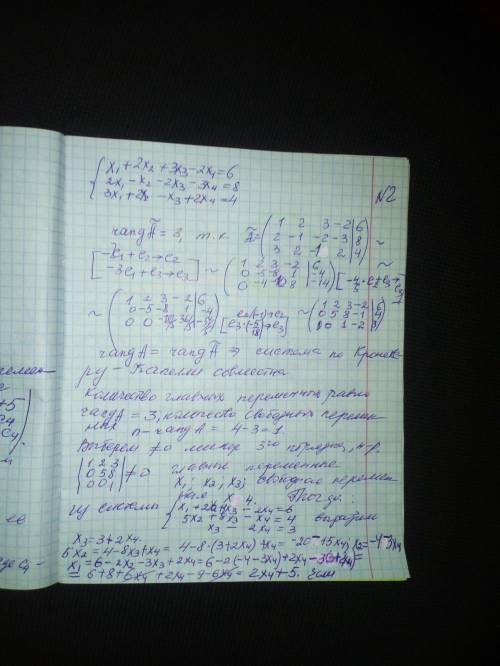 x₁+2x₂+3x₃-2x₄=6
2x₁-x₂-2x₃-3x₄=8
3x₁+2x₂-x₃+2x₄=4
N2
rang Ã = 3, т.к. Ã = (1 2 3 -2 | 6
2 -1 -2 -3 | 8
3 2 -1 2 | 4) ~
[-e₁+e₂→e₂
-3e₁+e₃→e₃] ~ (1 2 3 -2 | 6
0 -5 -8 1 | -4
0 -4 -10 8 | -14) [-4/5·e₂+e₃→e₃] ~
~ (1 2 3 -2 | 6
0 -5 -8 1 | -4
0 0) [e₂·(-1)→e₂
e₃·(-5/18)→e₃] ~ (1 2 3 -2 | 6
0 5 8 -1 | 4
0 0 1 -2 | 3)
rang A = rang Ã ⇒ система по Кронеке-
ру - Капелли совместна.
Количество главных переменных равно
rang A = 3, количество свободных перемен-
ных n - rang A = 4-3=1
Выберем ≠0 минор 3го порядка, н-р.
|1 2 3
0 5 8
0 0 1| ≠0 главные переменные
x₁, x₂, x₃, свободная перемен-
ная x 4. Тогда:
из системы {x₁+2x₂+3x₃-2x₄=6
5x₂+8x₃-x₄=4 выразим
x₃-2x₄=3
x₃=3+2x₄
5x₂=4-8x₃+x₄=4-8·(3+2x₄)+x₄=-20-15x₄; x₂=-4-3x₄
x₁=6-2x₂-3x₃+2x₄=6-2(-4-3x₄)+2x₄-3(3+2x₄)=
= 6+8+6x₄+2x₄-9-6x₄=2x₄+5. Если
+5
её
где C₄ -